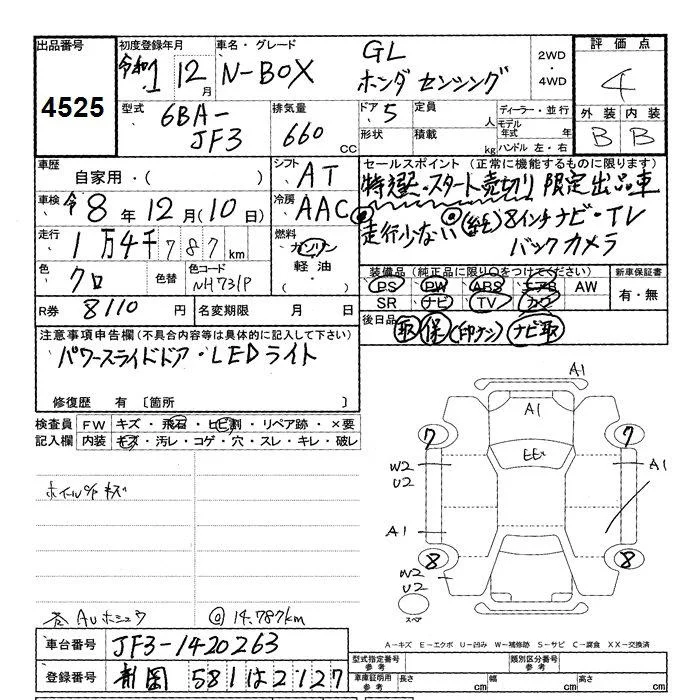 出品番号 初度登録年月 車名・グレード 2WD・4WD 評価点
4525 令和1 12月 N-BOX GL ホンダセンシング 4
型式 6BA-JF3 排気量 660 CC ドア 5 定員 人 ディーラー・並行 外装 内装
形状 積載 kg モデル年式 年 ハンドル 左・右 B B
車歴 自家用・( ) シフト AT セールスポイント (正常に機能するものに限ります)
特選・スタート売切り 限定出品車
車検 令8年12月(10日) 冷房 AAC 走行少ない (純)8インチナビ・TV
バックカメラ
走行 1万4千787km 燃料 ガソリン 軽油・
色 クロ 色替 色コード NH731P 装備品 (純正品に限り○をつけてください) 新車保証書
PS PW ABS エアB AW 有・無
SR ナビ TV カワ
R券 8110円 名変期限 月 日 後日品 取 保 (印ナシ) ナビ取
注意事項申告欄(不具合内容等は具体的に記入して下さい)
パワースライドドア・LEDライト
修復歴 有 〔箇所
検査員記入欄 FW キズ・飛石・ヒビ割・リペア跡・×要
内装 キズ・汚レ・コゲ・穴・スレ・キレ・破レ
A1
A1
7 7
W2 U2 A1
A1
8 8
W2 U2
スペア
◎14.787km
A-キズ E-エクボ U-凹み W-補修跡 S-サビ C-腐食 XX-交換済
車台番号 JF3-1420263 型式指定番号 参考 類別区分番号 参考
登録番号 581は2127 車庫証明用 参考 長さ cm 幅 cm 高さ cm